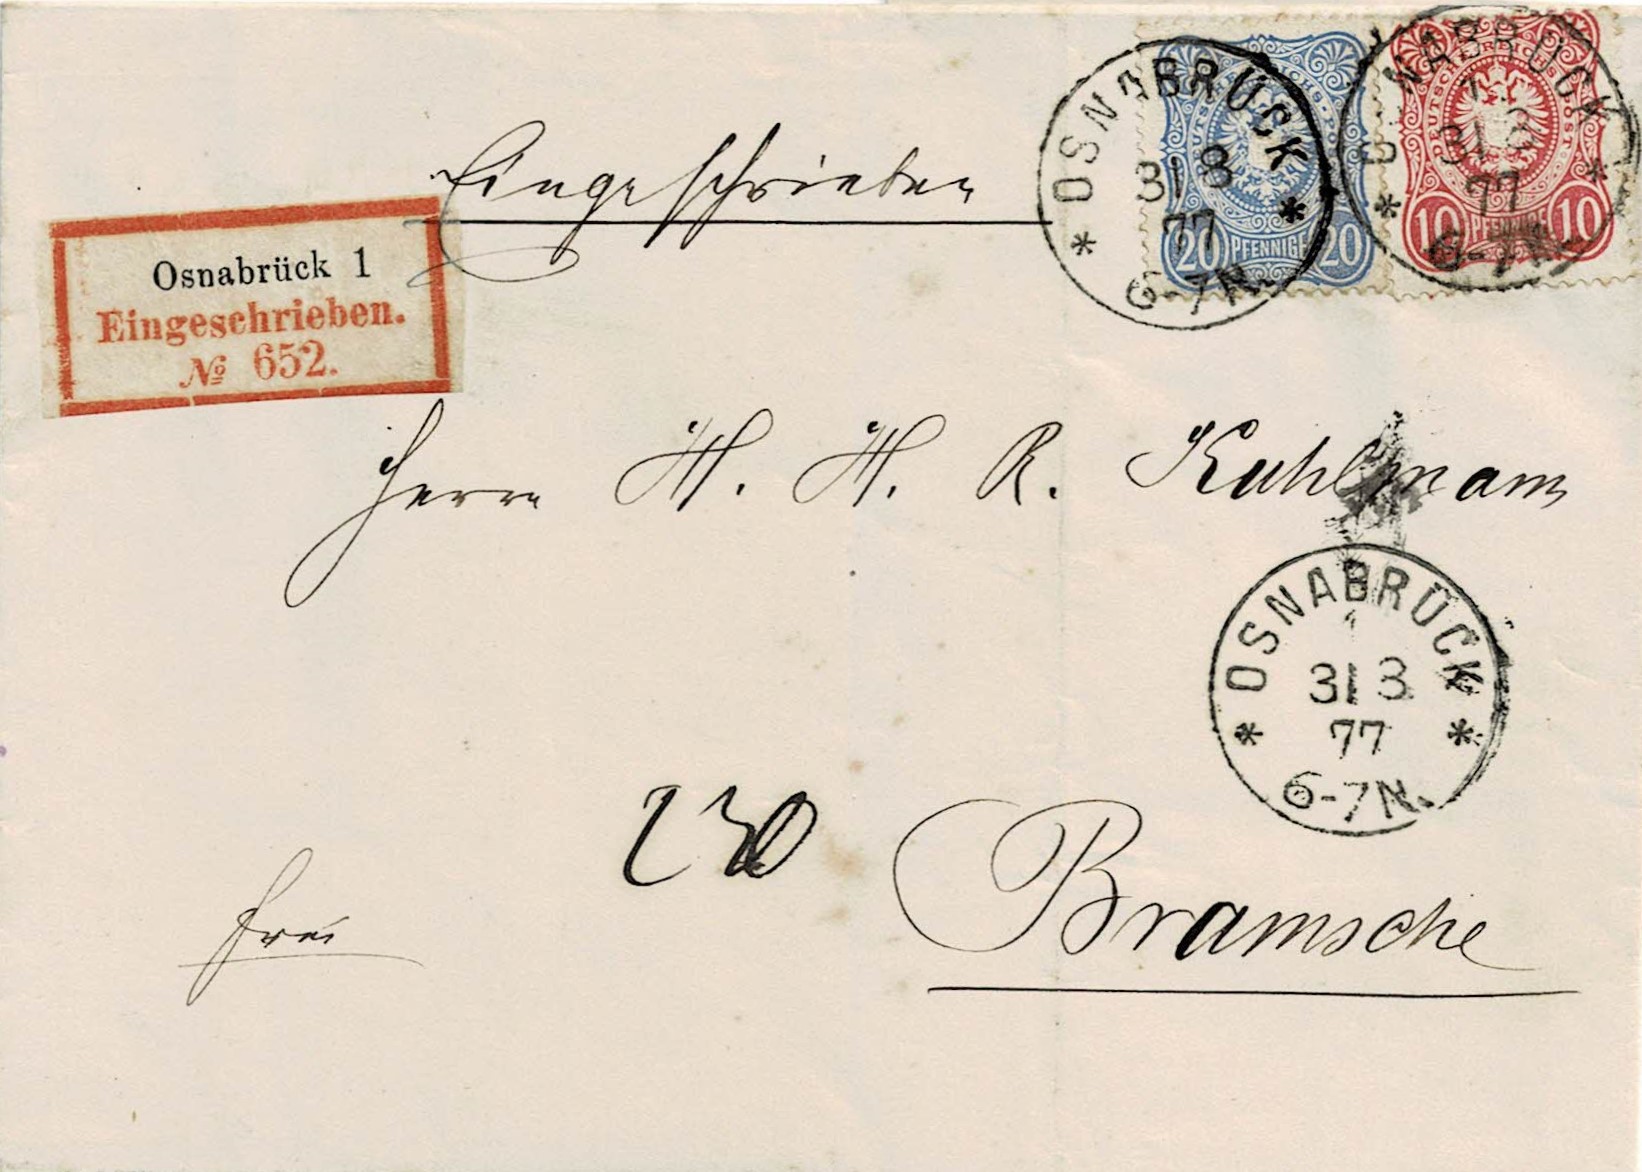 Eingeschrieben
OSNABRÜCK
31 3
77
6-7N.
DEUTSCHE REICHS-POST
20 PFENNIGE 20
OSNABRÜCK
1
31 3
77
6-7N.
DEUTSCHE REICHS-POST
10 PFENNIGE 10
Osnabrück 1
Eingeschrieben.
№ 652.
Herrn H. H. R. Kuhlmann
OSNABRÜCK
1
31 3
77
6-7N.
Bramsche
frei